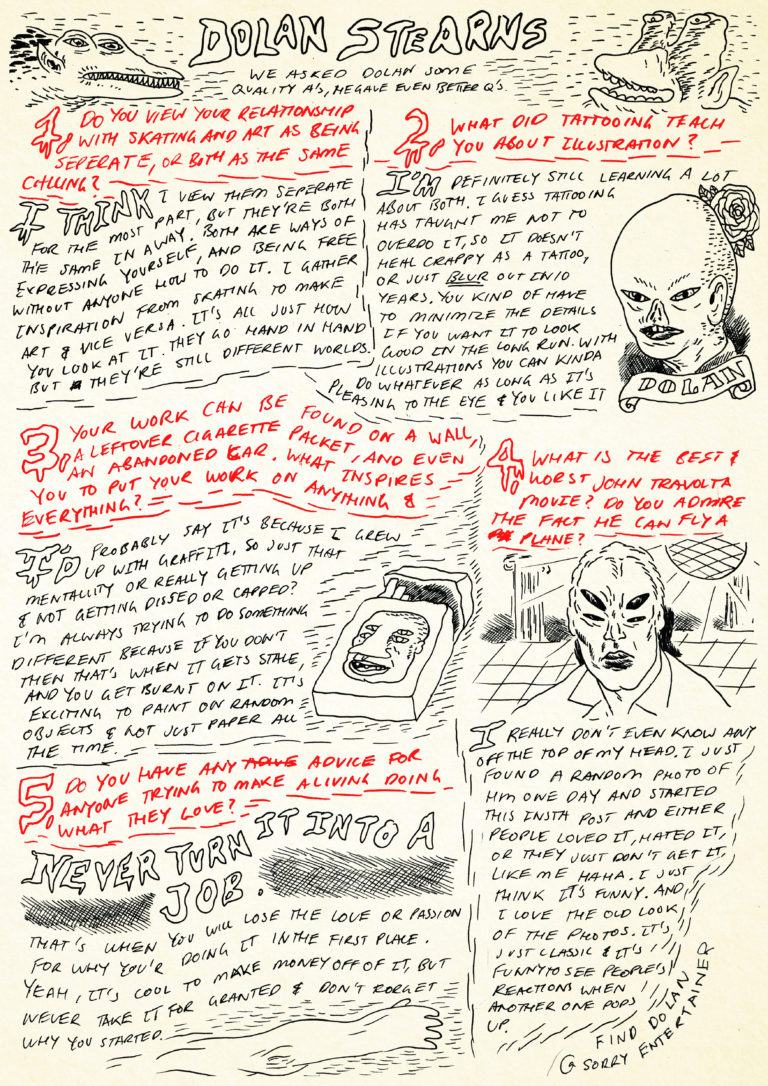 DOLAN STEARNS
WE ASKED DOLAN SOME
QUALITY A'S, HE GAVE EVEN BETTER Q'S.
1. DO YOU VIEW YOUR RELATIONSHIP
WITH SKATING AND ART AS BEING
SEPERATE, OR BOTH AS THE SAME
CALLING?
I THINK I VIEW THEM SEPERATE
FOR THE MOST PART, BUT THEY'RE BOTH
THE SAME IN A WAY. BOTH ARE WAYS OF
EXPRESSING YOURSELF, AND BEING FREE
WITHOUT ANYONE HOW TO DO IT. I GATHER
INSPIRATION FROM SKATING TO MAKE
ART & VICE VERSA. IT'S ALL JUST HOW
YOU LOOK AT IT. THEY GO HAND IN HAND
BUT THEY'RE STILL DIFFERENT WORLDS.
2. WHAT DID TATTOOING TEACH
YOU ABOUT ILLUSTRATION?
I'M DEFINITELY STILL LEARNING A LOT
ABOUT BOTH. I GUESS TATTOOING
HAS TAUGHT ME NOT TO
OVERDO IT, SO IT DOESN'T
HEAL CRAPPY AS A TATTOO,
OR JUST BLUR OUT IN 10
YEARS. YOU KIND OF HAVE
TO MINIMIZE THE DETAILS
IF YOU WANT IT TO LOOK
GOOD IN THE LONG RUN. WITH
ILLUSTRATIONS YOU CAN KINDA
DO WHATEVER AS LONG AS IT'S
PLEASING TO THE EYE & YOU LIKE IT
DOLAN
3. YOUR WORK CAN BE FOUND ON A WALL,
A LEFTOVER CIGARETTE PACKET, AND EVEN
AN ABANDONED CAR. WHAT INSPIRES
YOU TO PUT YOUR WORK ON ANYTHING &
EVERYTHING?
I'D PROBABLY SAY IT'S BECAUSE I GREW
UP WITH GRAFFITI, SO JUST THAT
MENTALITY OR REALLY GETTING UP
& NOT GETTING DISSED OR CAPPED?
I'M ALWAYS TRYING TO DO SOMETHING
DIFFERENT BECAUSE IF YOU DON'T
THEN THAT'S WHEN IT GETS STALE,
AND YOU GET BURNT ON IT. IT'S
EXCITING TO PAINT ON RANDOM
OBJECTS & NOT JUST PAPER ALL
THE TIME.
4. WHAT IS THE BEST &
WORST JOHN TRAVOLTA
MOVIE? DO YOU ADMIRE
THE FACT HE CAN FLY A
PLANE?
I REALLY DON'T EVEN KNOW ANY
OFF THE TOP OF MY HEAD. I JUST
FOUND A RANDOM PHOTO OF
HIM ONE DAY AND STARTED
THIS INSTA POST AND EITHER
PEOPLE LOVED IT, HATED IT,
OR THEY JUST DON'T GET IT,
LIKE ME HAHA. I JUST
THINK IT'S FUNNY. AND
I LOVE THE OLD LOOK
OF THE PHOTOS. IT'S
JUST CLASSIC & IT'S
FUNNY TO SEE PEOPLE'S
REACTIONS WHEN
ANOTHER ONE POPS
UP.
5. DO YOU HAVE ANY ADVICE FOR
ANYONE TRYING TO MAKE A LIVING DOING
WHAT THEY LOVE?
NEVER TURN IT INTO A
JOB.
THAT'S WHEN YOU WILL LOSE THE LOVE OR PASSION
FOR WHY YOU'R DOING IT IN THE FIRST PLACE.
YEAH, IT'S COOL TO MAKE MONEY OFF OF IT, BUT
NEVER TAKE IT FOR GRANTED & DON'T FORGET
WHY YOU STARTED.
FIND DOLAN
@ SORRY ENTERTAINER